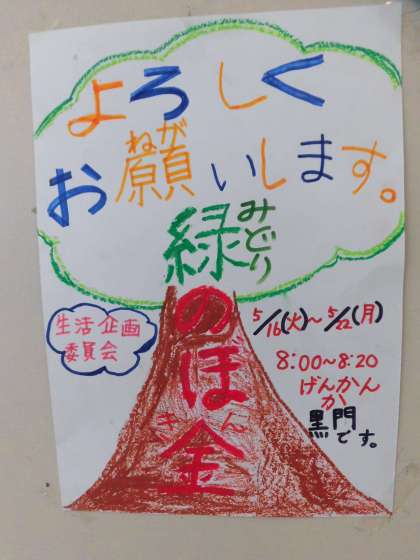 よろしく
お願いします。
ねが
緑
みどり
のぼ金
きん
生活企画
委員会
5/16(火)～5/22(月)
8:00～8:20
げんかん
か
黒門
です。